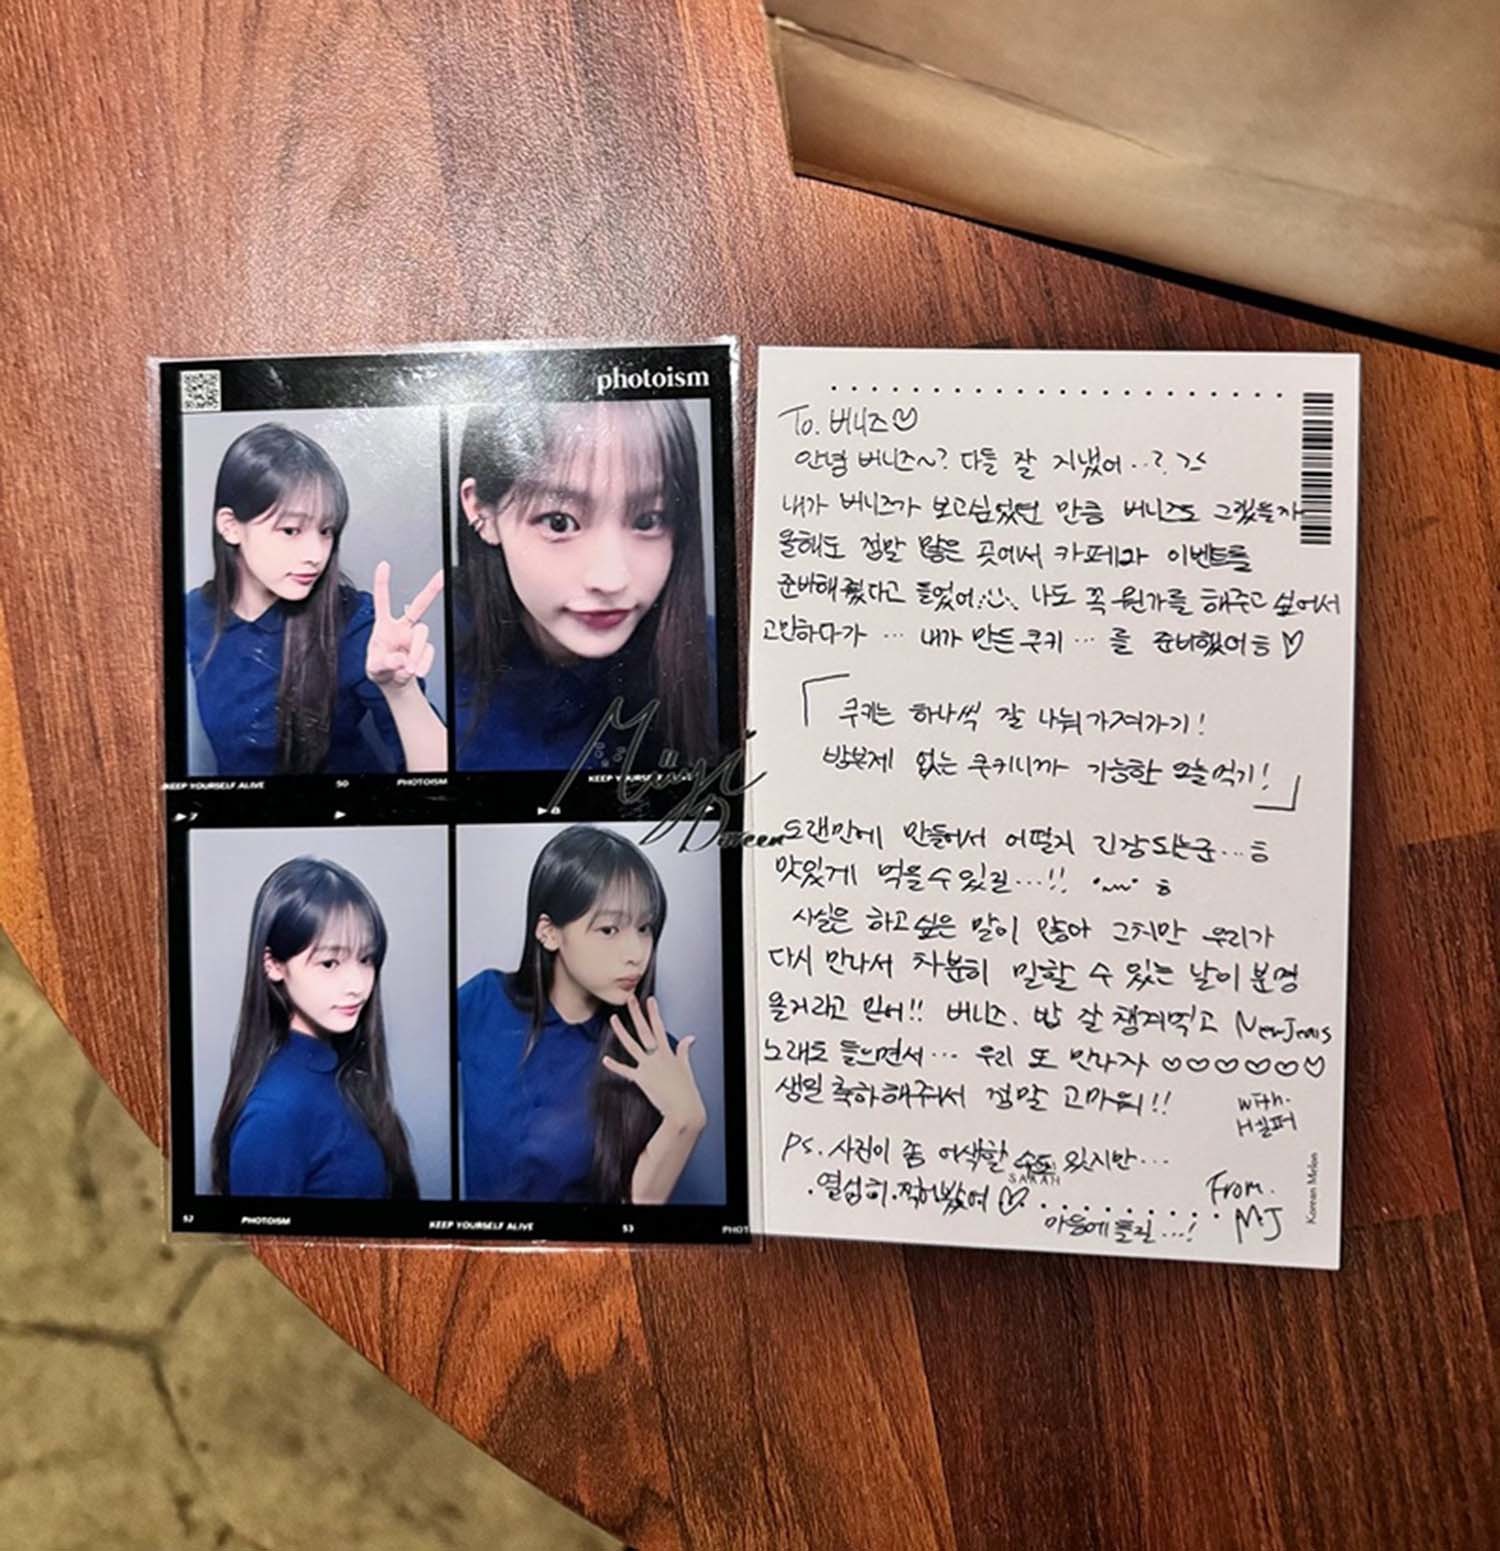 photoism
KEEP YOURSELF ALIVE
50
PHOTOISM
KEEP YOURSELF ALIVE
7
8
52
PHOTOISM
KEEP YOURSELF ALIVE
53
PHOT
To. 버니즈♡
안녕 버니즈~? 다들 잘 지냈어..? ><
내가 버니즈가 보고싶었던 만큼 버니즈도 그랬을지
올해도 정말 많은 곳에서 카페와 이벤트를
준비해줬다고 들었어 나도 꼭 뭔가를 해주고 싶어서
고민하다가 ... 내가 만든 쿠키 ... 를 준비했어 ㅎ ♡
「 쿠키는 하나씩 잘 나눠 가져가기!
방부제 없는 쿠키니까 가능한 오늘 먹기! 」
오랜만에 만들어서 어떨지 긴장되는군... ㅎ
맛있게 먹을 수 있길...!! ㅎ
사실은 하고싶은 말이 많아 그치만 우리가
다시 만나서 차분히 말할 수 있는 날이 분명
올거라고 믿어!! 버니즈. 밥 잘 챙겨먹고 NewJeans
노래도 들으면서... 우리 또 만나자 ♡♡♡♡♡♡
생일 축하해줘서 정말 고마워!!
with.
H실퍼
Ps. 사진이 좀 어색할 수도 있지만...
SARAH
열심히 찍어봤어 ♡
마음에 들길...!
From.
MJ
Korean Melon